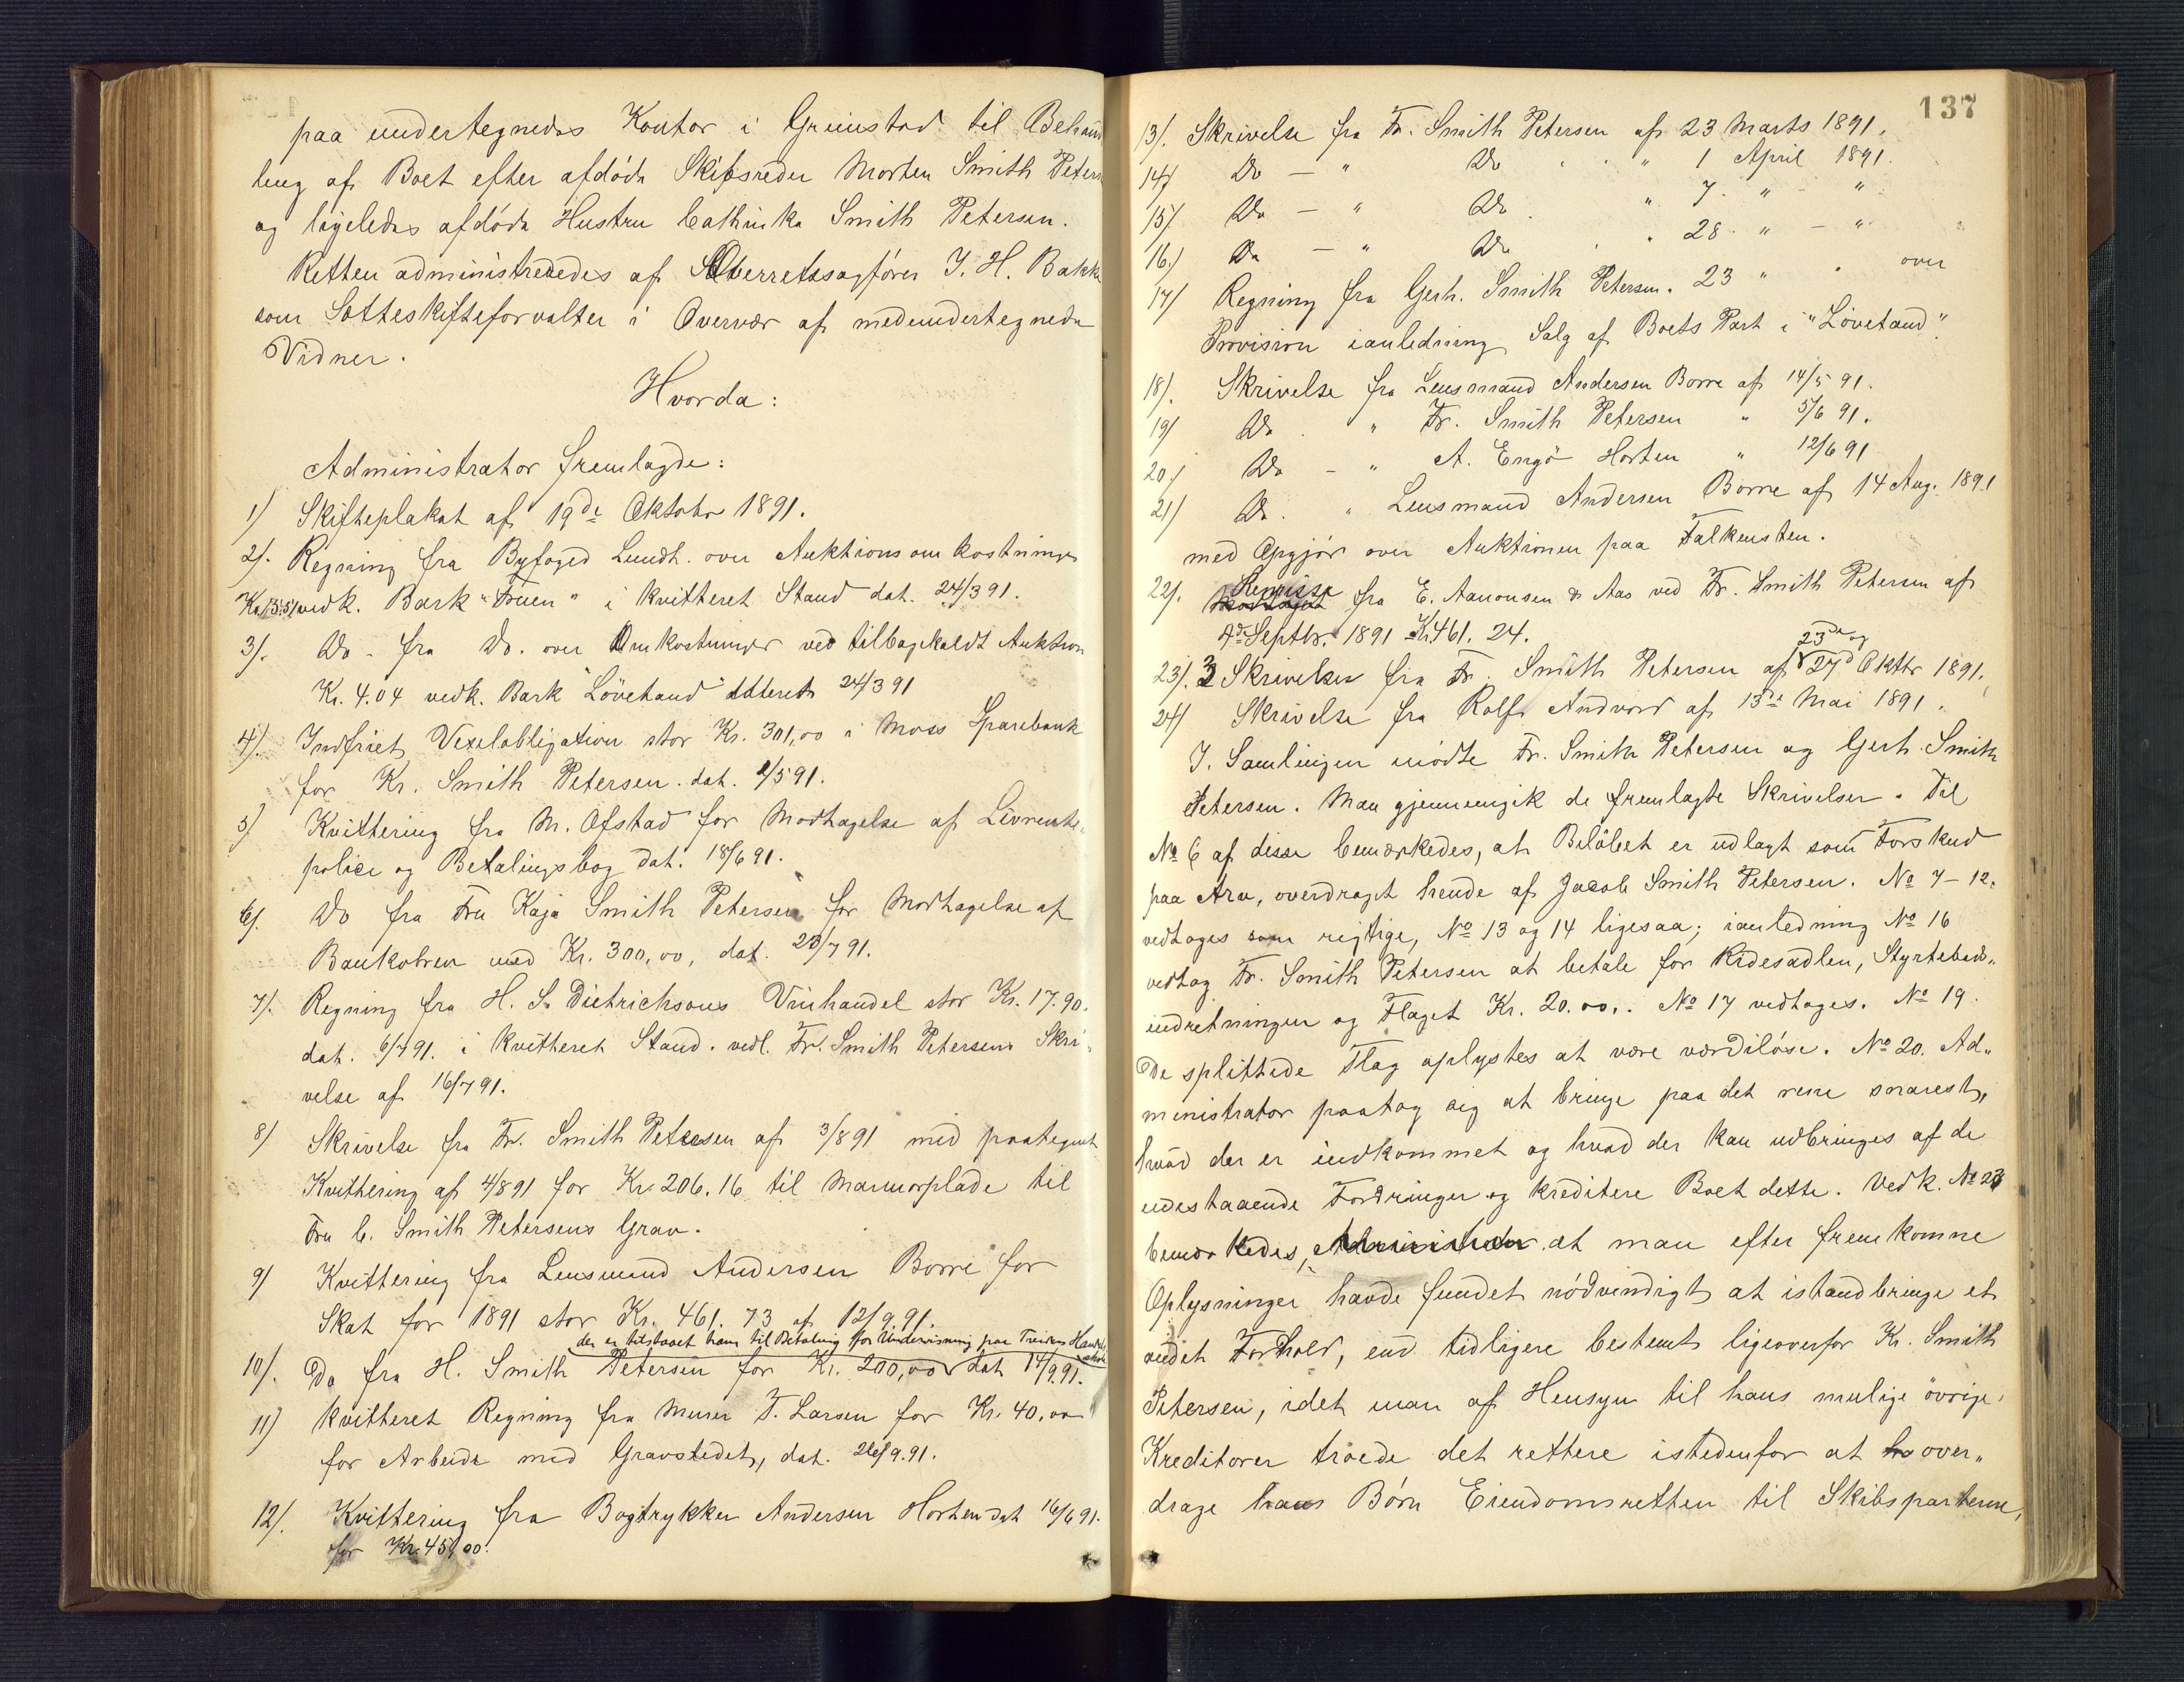 paa undertegnedes Kontor i Grimstad til Behand
ling af Boet efter afdøde Skibsreder Morten Smith Peters
og ligeledes afdøde Hustru Cathinka Smith Petersen.
Retten administreredes af Overretssagfører J. H. Bakke
som Sotteskifteforvalter i Overvær af medundertegnede
Vidner.
Hvorda:
Administrator fremlagde:
1) Skifteplakat af 19de Oktobr 1891.
2). Regning fra Byfoged Lundh. over Auktionsomkostninger
vedk. Bark "Fruen" i kvitteret Stand dat. 24/3 91.
3). Do - fra Do. over Omkostninger ved tilbagekaldt Auktion
Kr. 4.04 vedk. Bark "Løvetand" 24/3 91
4). Indfriet Vexelobligation stor Kr. 301,00 i Moss Sparebank
for Kr. Smith Petersen. dat. 2/5 91.
5) Kvittering fra M. Ofstad for Modtagelse af Livrente-
police og Betalingsbog dat. 18/6 91.
6). Do fra Fru Kaja Smith Petersen for Modtagelse af
Bankobven med Kr. 300,00, dat. 23/7 91.
7). Regning fra H. S. Dietrichsons Vinhandel stor Kr. 17.90.
dat. 6/7 91. i kvitteret Stand. vedl. Fr. Smith Petersens Skri-
velse af 16/7 91.
8) Skrivelse fra Fr. Smith Petersen af 3/8 91 med paategnet
Kvittering af 4/8 91 for Kr. 206.16 til Marmorplade til
Fru C. Smith Petersens Grav.
9) Kvittering fra Lensmand Andersen Borre for
Skat for 1891 stor Kr. 461.73 af 12/9.91.
der er tilstaaet ham til Betaling for Undervisning paa Treiders Handels
10). Do fra H. Smith Petersen for Kr. 200,00 dat 14/9.91.
11) Kvitteret Regning fra Murer T. Larsen for Kr. 40,00
for Arbeide med Gravstedet, dat. 26/9.91.
12). Kvittering fra Bogtrykker Andersen Horten dat 16/6 91.
for Kr. 45,00.
137
13). Skrivelse fra Fr. Smith Petersen af 23 Marts 1891.
14) Do — " Do " 1 April 1891.
15). Do — " Do " 7. " - "
16.) Do — " Do " 28. " - "
17) Regning fra Gerh. Smith Petersen. 23 " " over
Provision ianledning Salg af Boets Part i "Løvetand".
18). Skrivelse fra Lensmand Andersen Borre af 14/5 91.
19) Do " Fr. Smith Petersen " 5/6 91.
20.) Do - " A. Engø Horten " 12/6 91
21) Do. " Lensmand Andersen Borre af 14 Aug. 1891
med Opgjør over Auktionen paa Falkensten.
22). Remisse fra E. Aanonsen & Aas ved Fr. Smith Petersen af
4de Septbr. 1891 Kr. 461.24.
23de og
23). 2 Skrivelser fra Fr. Smith Petersen af 27d Oktbr 1891.
24) Skrivelse fra Rolf Andvord af 13de Mai 1891.
I. Samlingen mødte Fr. Smith Petersen og Gerh. Smith
Petersen. Man gjennemgik de fremlagte Skrivelser. Til
No 6 af disse bemærkedes, at Beløbet er udlagt som Forskud
paa Arv, overdraget hende af Jacob Smith Petersen. No 7–12.
vedtoges som rigtige, No 13 og 14 ligesaa; ianledning No 16
vedtog Fr. Smith Petersen at betale for Ridesadlen, Styrtebads-
indretningen og Flaget Kr. 20.00.. No 17 vedtoges. No 19.
De splittede Flag oplystes at være værdiløse. No 20. Ad-
ministrator paatog sig at bringe paa det rene snarest,
hvad der er indkommet og hvad der kan udbringes af de
udestaaende Fordringer og kreditere Boet dette. Vedk. No 23
bemærkedes, at man efter fremkomne
Oplysninger havde fundet nødvendigt at istandbringe et
andet Forhold, end tidligere bestemt ligeoverfor Kr. Smith
Petersen, idet man af Hensyn til hans mulige øvrige
Kreditorer troede det rettere istedenfor at over-
drage hans Børn Eiendomsretten til Skibsparterne,